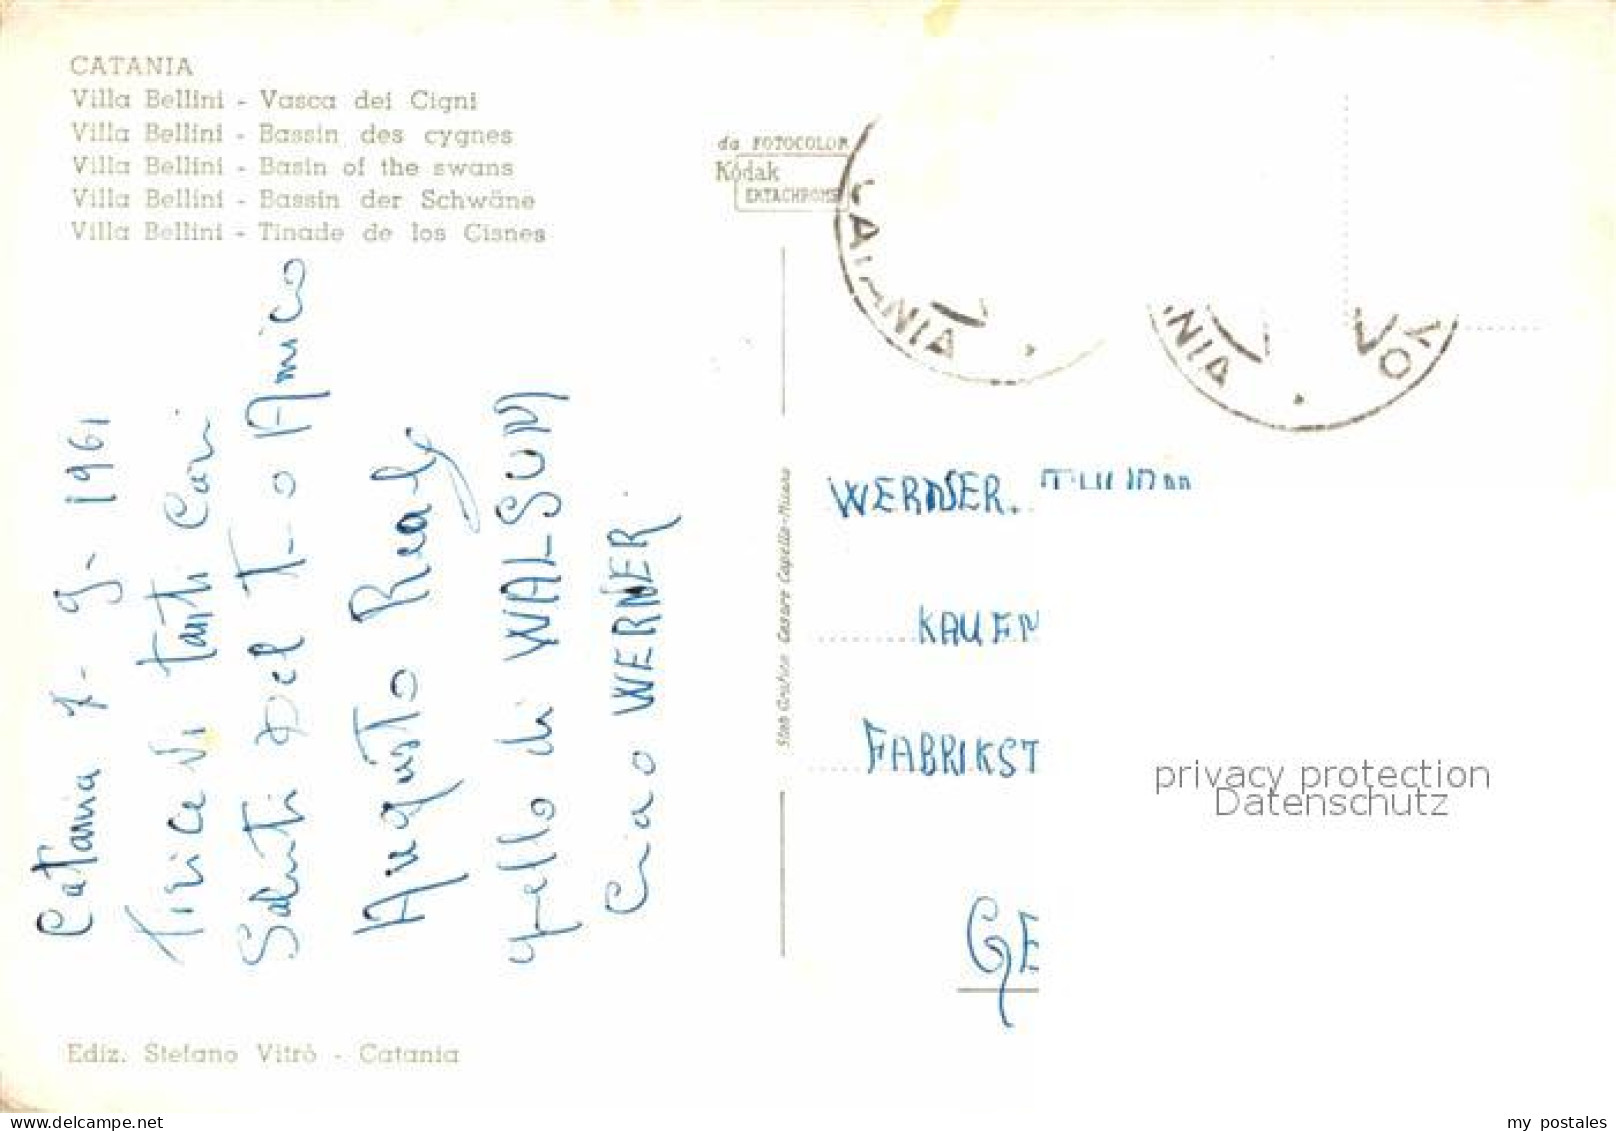 CATANIA
Villa Bellini - Vasca dei Cigni
Villa Bellini - Bassin des cygnes
Villa Bellini - Basin of the swans
Villa Bellini - Bassin der Schwäne
Villa Bellini - Tinade de los Cisnes
da FOTOCOLOR
Kodak
EKTACHROME
CATANIA
NIA
Catania 7-9-1961
Tirice vi tanti Cari
Saluti Del T-o Amico
Augusto Reale
quello di WALSUM
Ciao WERNER
Stab Grafico Cesare Capello-Milano
WERNER.
KAUFN
FABRIKST
GE
privacy protection
Datenschutz
Ediz. Stefano Vitrò - Catania
www.delcampe.net
my_postales